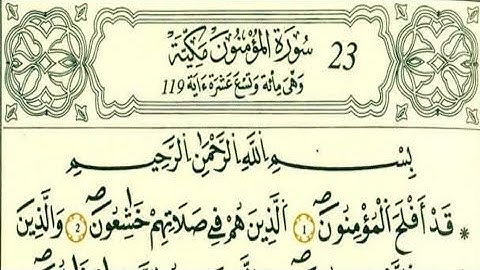 23 سُورَةُ المُؤْمِنُونَ مَكِّيَّة
وَهْىَ مِائَة وَتِسْعَ عَشْرَةَ ءَايَة 119
بِسْمِ اِ۬للَّهِ اِ۬لرَّحْمَٰنِ اِ۬لرَّحِيمِ
* قَدَ اَفْلَحَ اَ۬لْمُؤْمِنُونَ 1 اَ۬لذِينَ هُمْ فِے صَلَاتِهِمْ خَٰشِعُونَ 2 وَالذِينَ